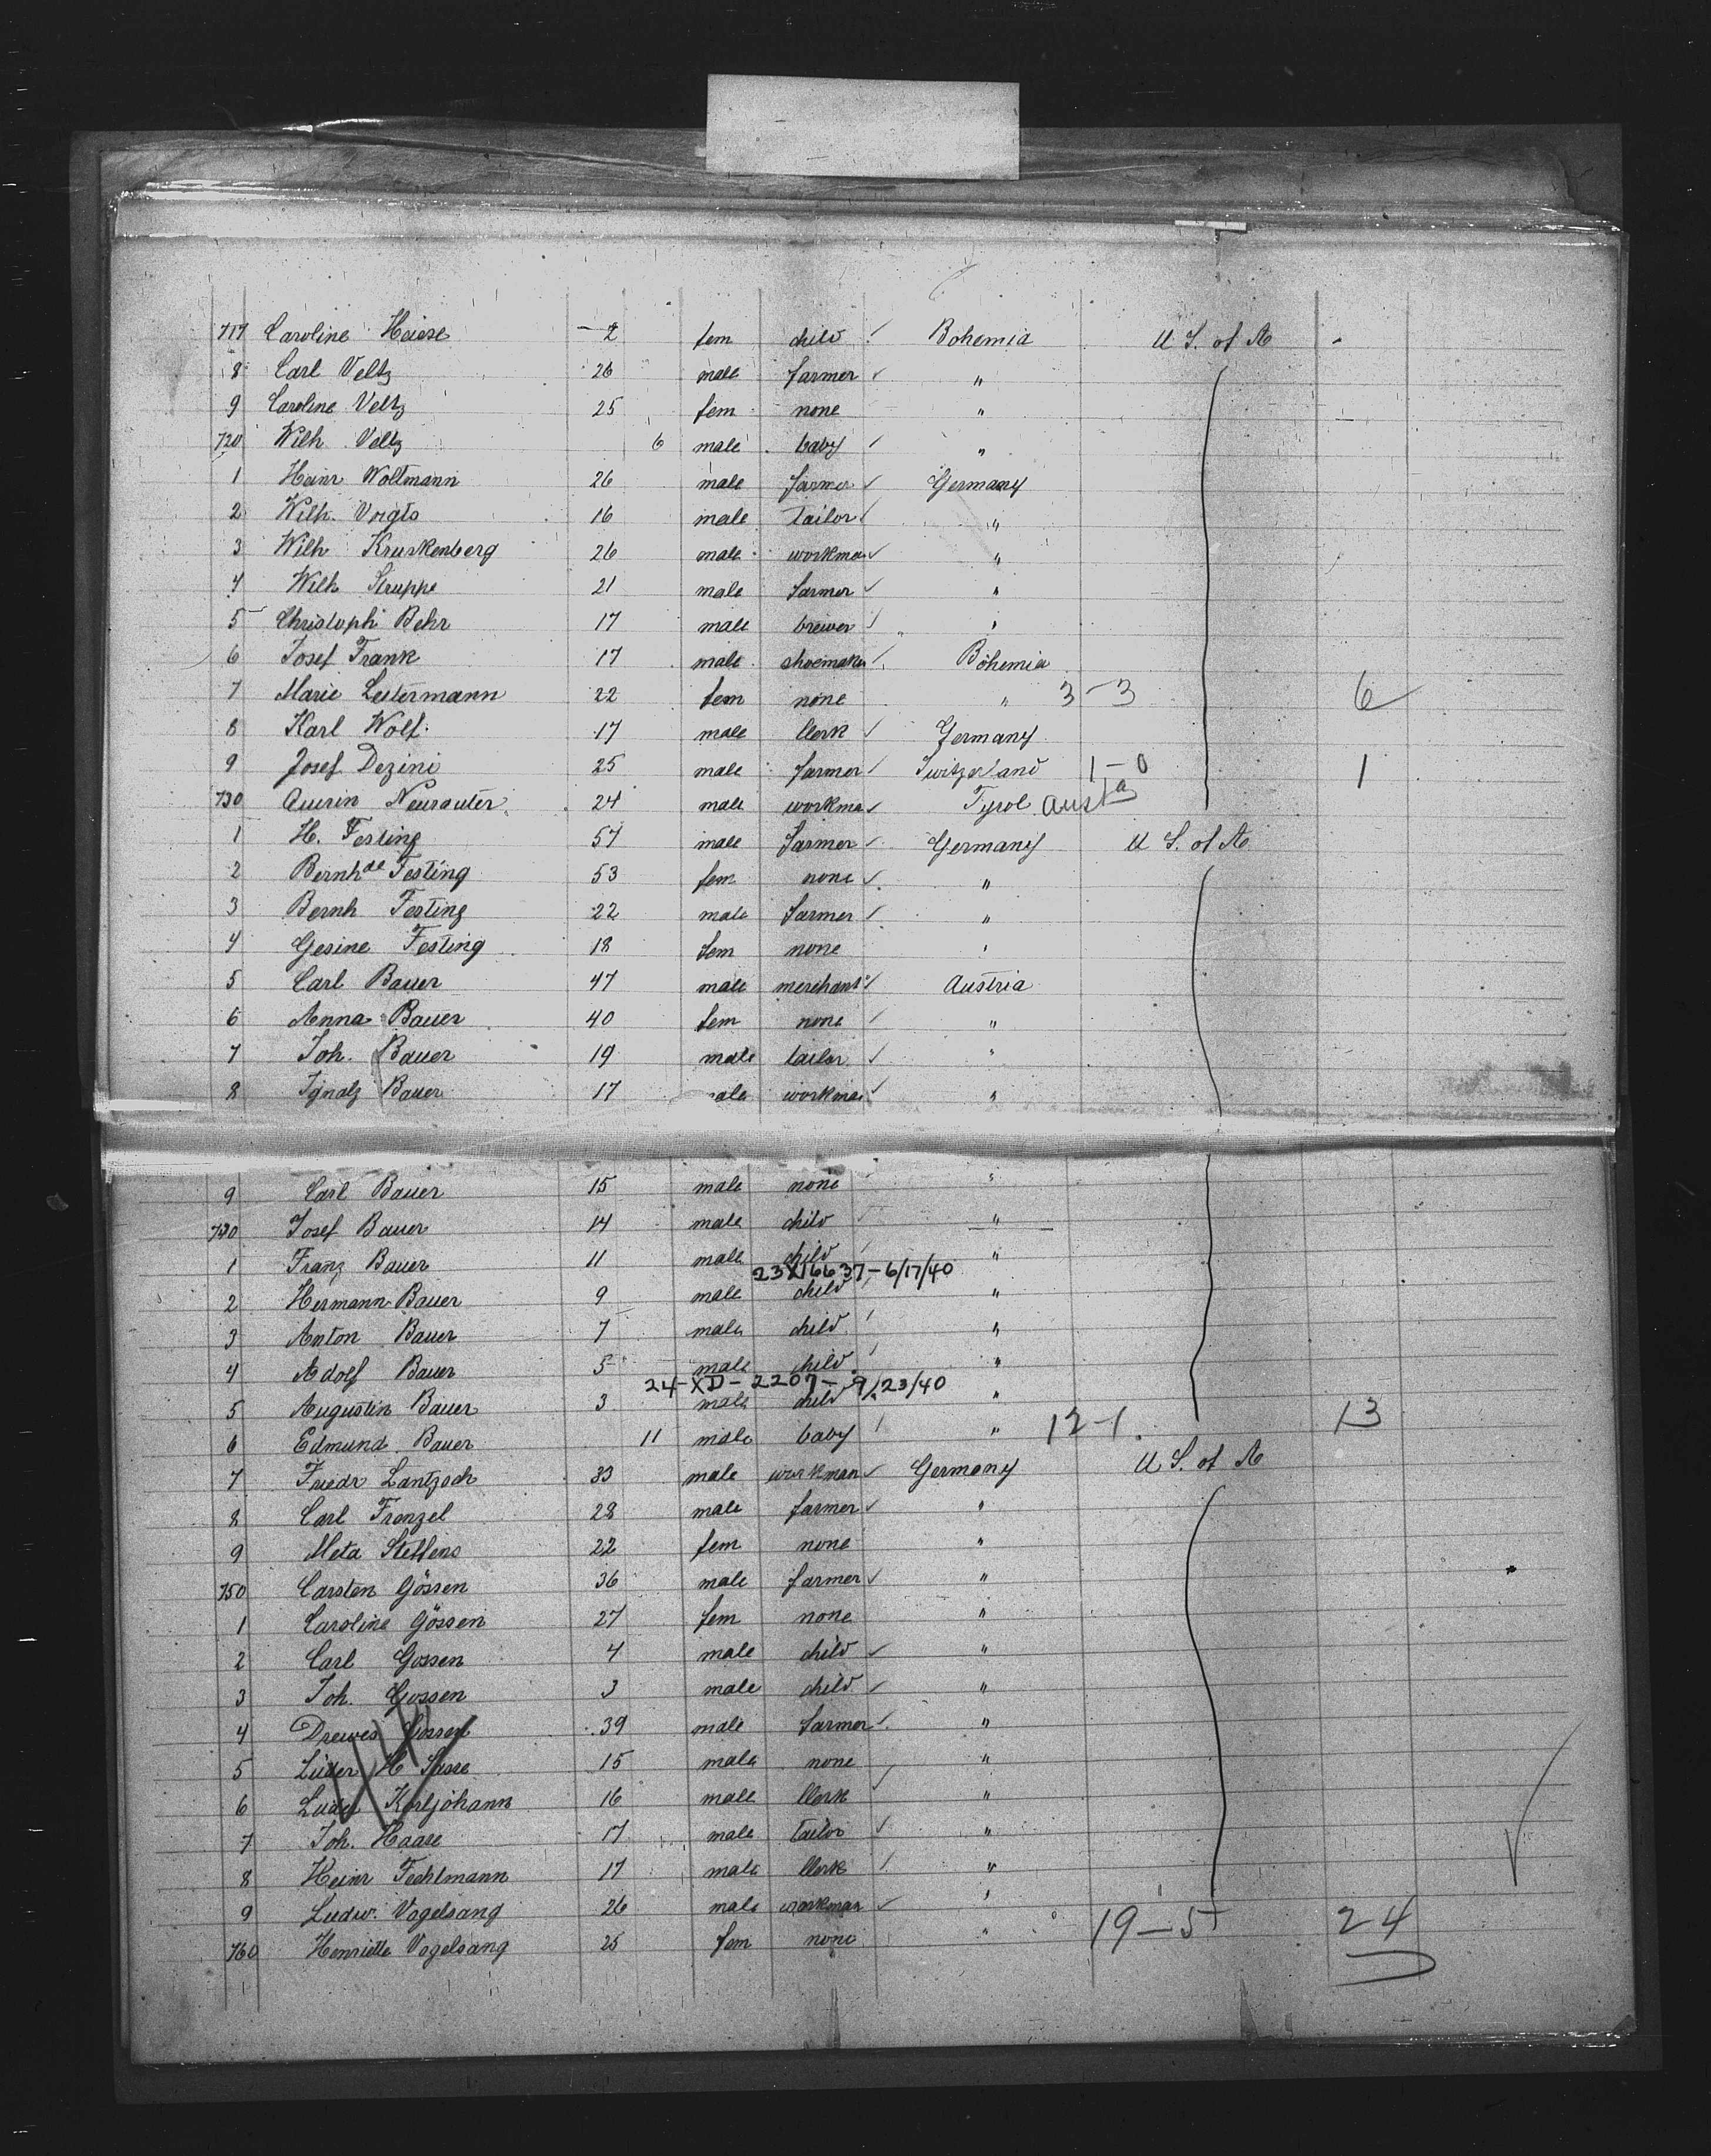 717 Caroline Heiese 2 fem child Bohemia U S. of A
8 Carl Veltz 26 male farmer "
9 Caroline Veltz 25 fem none "
720 Wilh Veltz 6 male baby "
1 Heinr Woltmann 26 male farmer Germany
2 Wilh. Voigts 16 male tailor "
3 Wilh Kruskenberg 26 male workman "
4 Wilh Struppe 21 male farmer "
5 Christoph Behr 17 male brewer "
6 Josef Frank 17 male shoemaker Bohemia
7 Marie Leitermann 22 fem none " 3-3 6
8 Karl Wolf. 17 male Clerk Germany
9 Josef Dezini 25 male farmer Switzerland 1-0 1
730 Quirin Neurauter 24 male workman Tyrol Aust a
1 H. Festing 57 male farmer Germany U S. of A
2 Bernhde Festing 53 fem none "
3 Bernh Festing 22 male farmer "
4 Gesine Festing 18 fem none "
5 Carl Bauer 47 male merchant Austria
6 Anna Bauer 40 fem none "
7 Joh. Bauer 19 male tailor "
8 Ignatz Bauer 17 male workman "
9 Carl Bauer 15 male none "
740 Josef Bauer 14 male child "
1 Franz Bauer 11 male child "
23X16637-6/17/40
2 Hermann Bauer 9 male child "
3 Anton Bauer 7 male child "
4 Adolf Bauer 5 male child "
24-XD-2207-9/23/40
5 Augustin Bauer 3 male child "
6 Edmund Bauer 11 male baby " 12-1 13
7 Friedr Lantzsch 33 male workman Germany U S. of A
8 Carl Frenzel 28 male farmer "
9 Meta Steffens 22 fem none "
750 Carsten Gössen 36 male farmer "
1 Caroline Gössen 27 fem none "
2 Carl Gossen 4 male child "
3 Joh. Gossen 3 male child "
4 Drewes Gossen 39 male farmer "
5 Lüder H Sasse 15 male none "
6 Ludw Korljohann 16 male Clerk "
7 Joh. Haase 17 male tailor "
8 Heinr Fechtmann 17 male Clerk "
9 Ludw. Vogelsang 26 male workman "
760 Henriette Vogelsang 25 fem none " 19-5 24